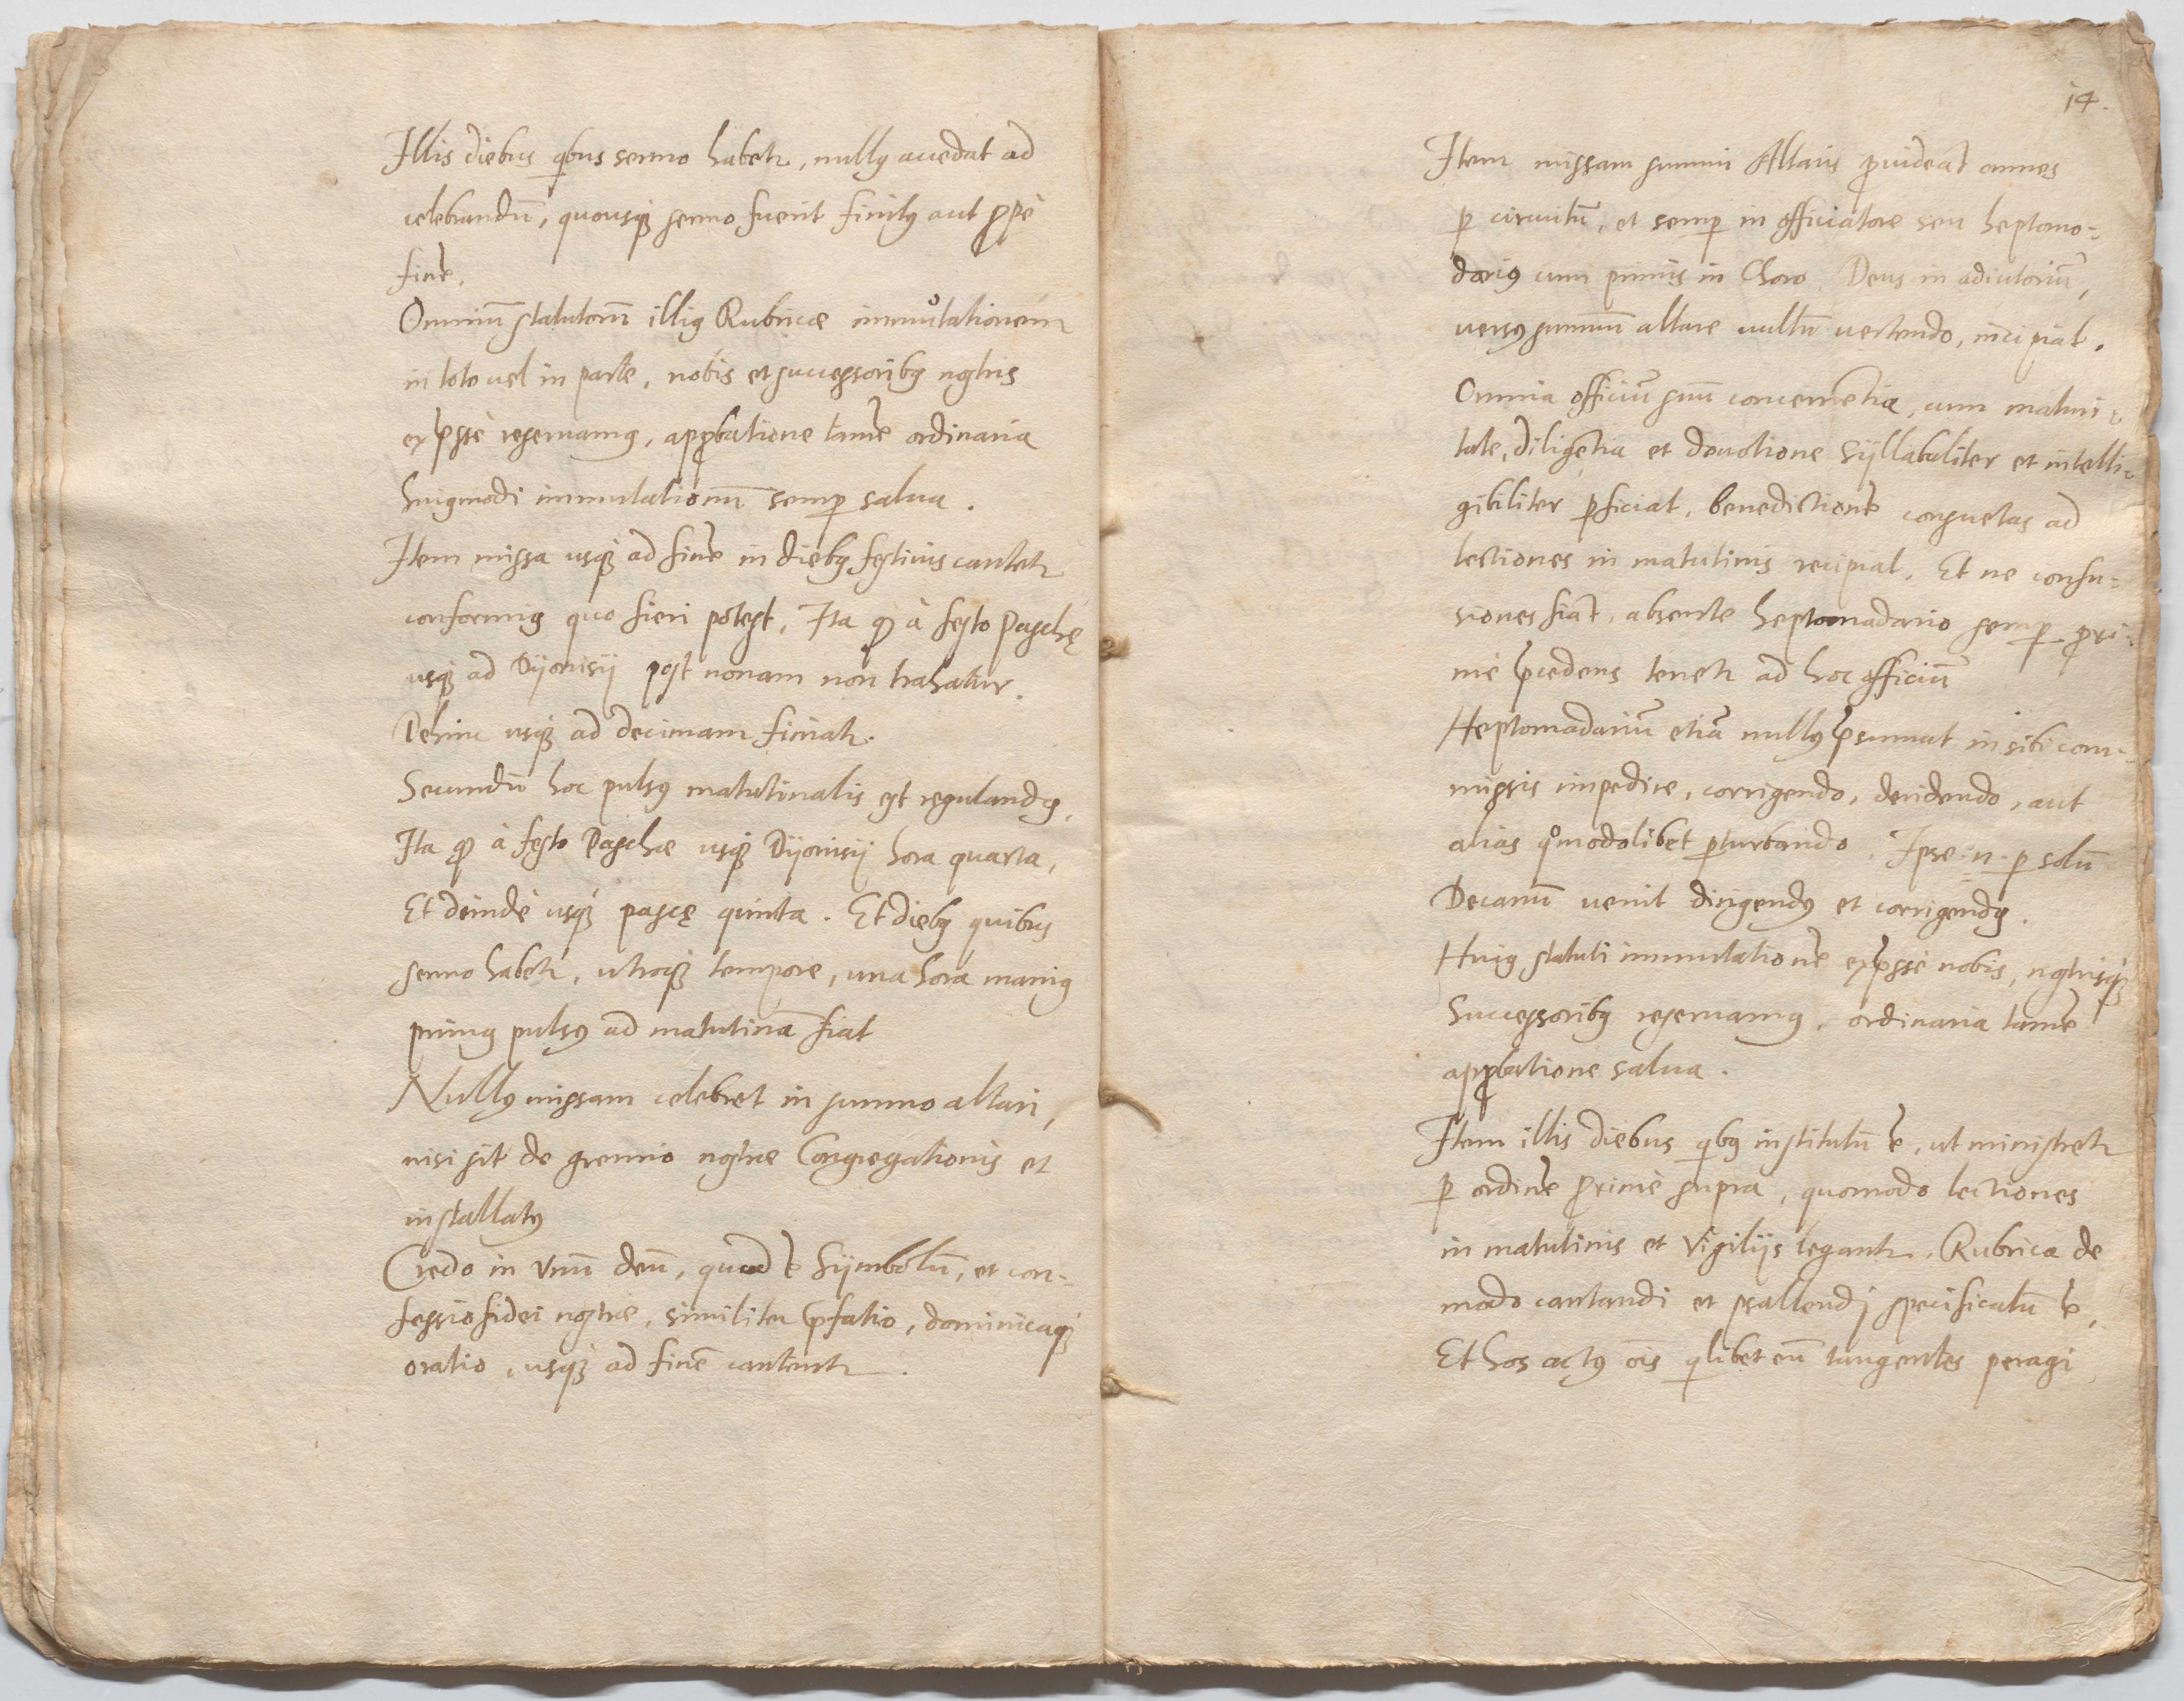 Illis diebus qbus sermo habetr, nullꝰ accedat ad
celebrandū, quousqꝫ sermo fuerit finitꝰ aut ꝓpè
finē.
Omniū statutorū illiꝰ Rubricæ immutationem
in toto uel in parte, nobis et successoribꝰ nostris
exp̄ssè reseruamꝰ, apꝓbatione tamē ordinaria
huiꝰmodi immutationū semꝑ salua.
Item missa usqꝫ ad finē in diebꝰ festiuis cantetr
conformiꝰ quo fieri potest, Ita ꝙ à festo Paschę
usqꝫ ad Dijonisij post nonam non trahatur.
Dehinc usqꝫ ad decimam finiatr.
Secundū hoc pulsꝰ matutinalis est regulandꝰ,
Ita ꝙ à festo Paschæ usqꝫ Dijonisij hora quarta,
Et deindè usqꝫ pascę quinta. Et diebꝰ quibus
sermo habetr, utroqꝫ tempore, una hora maniꝰ
primꝰ pulsꝰ ad matutinā fiat
Nullꝰ missam celebret in summo altari,
nisi sit de gremio nostræ Congregationis et
installatꝰ
Credo in Vnū deū, quod ē Sijmbolū, et con-
fessio fidei nostræ, similiter p̄fatio, dominicaqꝫ
oratio, usqꝫ ad finē cantentr.
14.
Item missam summi Altaris ꝓuideāt omnes
ꝑ circuitū, et semꝑ in officiatore seu heptomo-
dariꝰ cum primis in Choro Deus in adiutoriū,
uersꝰ summū altare uultū uertendo, incipiat.
Omnia officiū suū concernētia, cum maturi-
tate, diligētia et deuotione sijllabaliter et intelli-
gibiliter ꝑficiat, benedictionē consuetas ad
lectiones in matutinis recipiat. Et ne confu-
siones fiāt, absente heptomadario semꝑ ꝓxi-
mè p̄cedens tenetr ad hoc officiū
Heptomadariū etiā nullꝰ p̄sumat in sibi com-
missis impedire, corrigendo, deridendo, aut
alias qͦmodolibet ꝑturbando. Ipse .n. ꝑ solū
Decanū uenit dirigendꝰ et corrigendꝰ.
Huiꝰ statuti immutationē exp̄ssè nobis, nostrisqꝫ
Successoribꝰ reseruamꝰ, ordinaria tamē
apꝓbatione salua.
Item illis diebus qbꝰ institutū ē, ut ministretr
ꝑ ordinē ꝓximè supra, quomodo lectiones
in matutinis et Vigilijs legantr. Rubrica de
modo cantandi et psallendj specificatū ē,
Et hos actꝰ oīs qlibet eū tangentes peragi